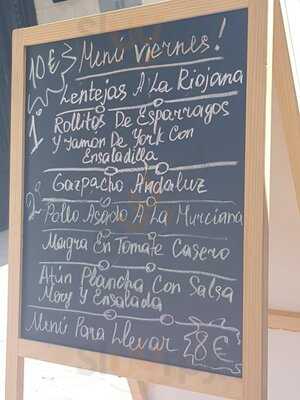 10€ Menú viernes!
1º Lentejas A La Riojana
Rollitos De Esparragos
Y Jamón De York Con
Ensaladilla
Gazpacho Andaluz
2º Pollo Asado A La Murciana
Magra En Tomate Casero
Atún Plancha Con Salsa
Mery Y Ensalada
Menú Para Llevar 8€